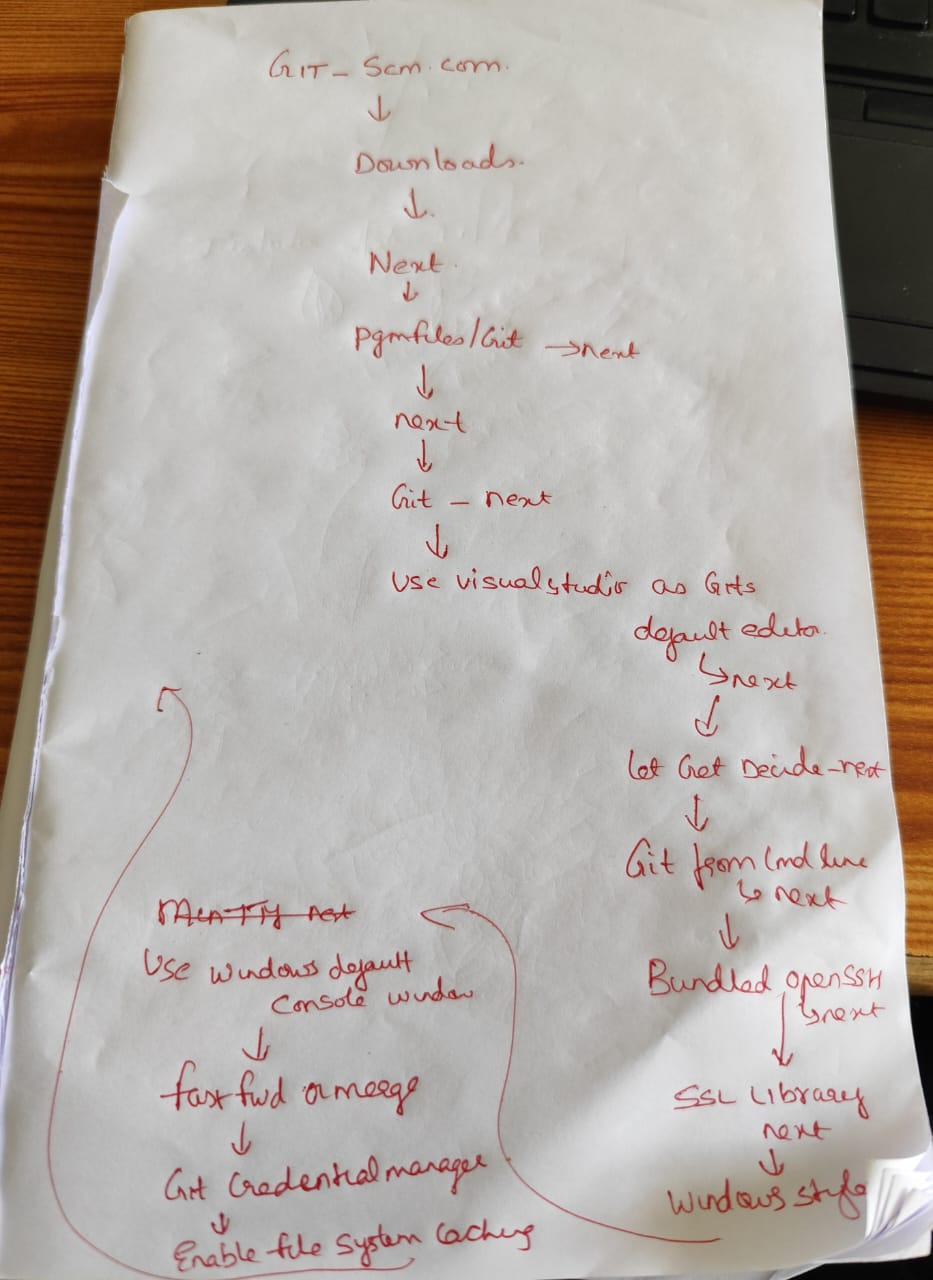 GIT - Scm.com.
↓
Downloads.
↓
Next.
↓
Pgmfiles/Git → next
↓
next
↓
Git - next
↓
Use visualstudio as Gits
default editor.
↳ next
↓
Let Get Decide - next
↓
Git from Cmd line
↳ next
↓
Bundled openSSH
↳ next
↓
SSL Library
next
↓
Windows style
MinTTY next
Use windows default
Console window
↓
fast fwd or merge
↓
Git Credential manager
↓
Enable file System Caching